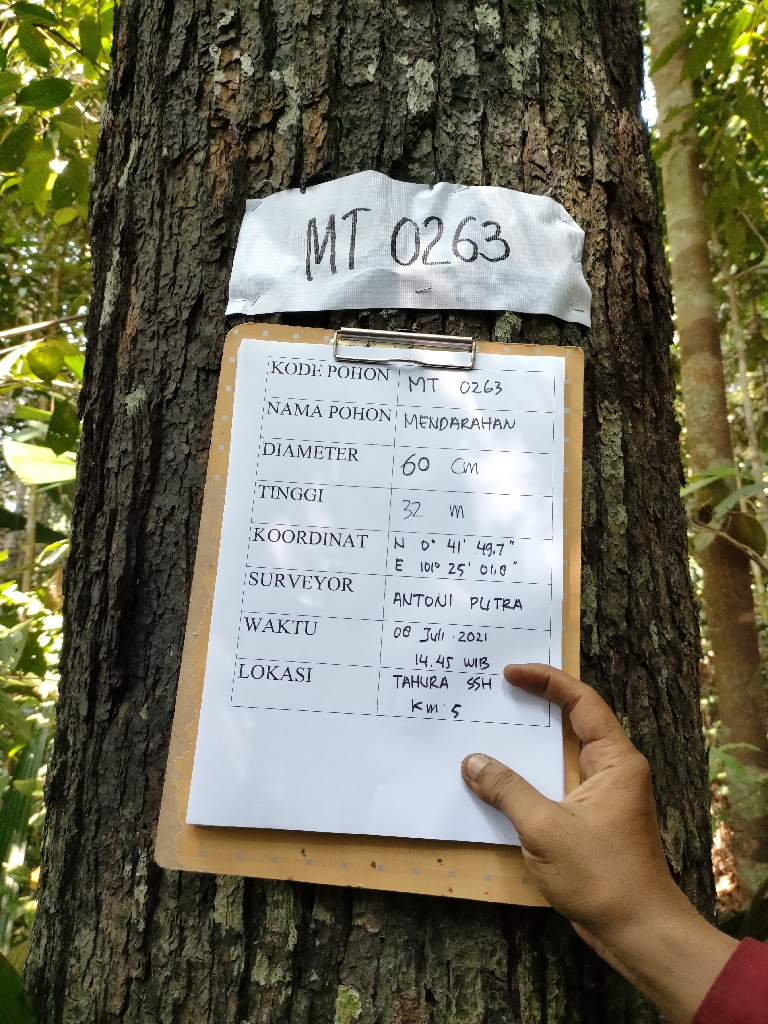 MT 0263
KODE POHON MT 0263
NAMA POHON MENDARAHAN
DIAMETER 60 cm
TINGGI 32 m
KOORDINAT N 0° 41' 49.7"
E 101° 25' 01.8"
SURVEYOR ANTONI PUTRA
WAKTU 08 Juli 2021
14.45 WIB
LOKASI TAHURA SSH
Km 5